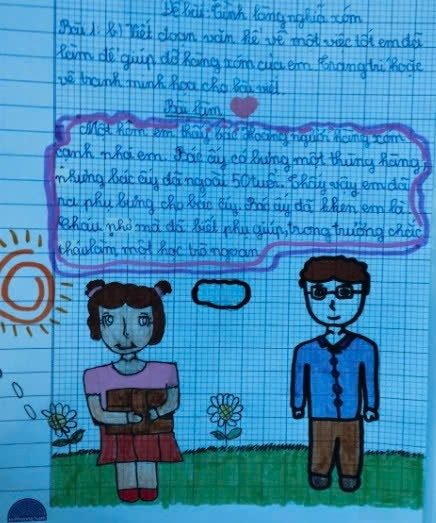 Đề bài: Tình làng nghĩa xóm
Bài 1: b) Viết đoạn văn kể về một việc tốt em đã
làm để giúp đỡ hàng xóm của em. Trang trí hoặc
vẽ tranh minh họa cho bài viết.
Bài làm
Một hôm em thấy bác Hoàng người hàng xóm
cạnh nhà em. Bác ấy có bưng một thùng hàng,
nhưng bác ấy đã ngoài 50 tuổi. Thấy vậy em đã
ra phụ bưng cho bác ấy. Bác ấy đã khen em là
Cháu nhỏ mà đã biết phụ giúp, trong trường chắc
cháu làm một học trò ngoan.